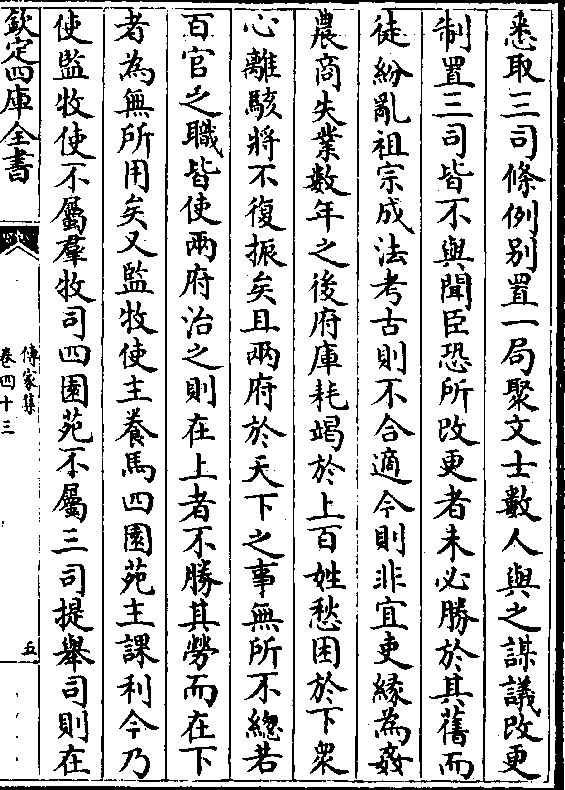 悉取三司條例別置一局聚文士數人與之謀議改更
制置三司皆不與聞臣恐所改更者未必勝於其舊而
徒紛亂祖宗成法考古則不合適今則非宜吏緣為姦
農商失業數年之後府庫耗竭於上百姓愁困於下衆
心離駭將不復振矣且兩府於天下之事無所不總若
百官之職皆使兩府治之則在上者不勝其勞而在下
者為無所用矣又監牧使主養馬四園苑主課利今乃
使監牧使不屬羣牧司四園苑不屬三司提舉司則在
欽定四庫全書
傳家集
卷四十三
五